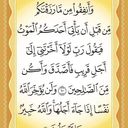 وَأَنفِقُوا مِن مَّا رَزَقْنَٰكُم
مِّن قَبْلِ أَن يَأْتِىَ أَحَدَكُمُ ٱلْمَوْتُ
فَيَقُولَ رَبِّ لَوْلَآ أَخَّرْتَنِىٓ إِلَىٰٓ
أَجَلٍ قَرِيبٍ فَأَصَّدَّقَ وَأَكُن
مِّنَ ٱلصَّٰلِحِينَ ۝ وَلَن يُؤَخِّرَ ٱللَّهُ
نَفْسًا إِذَا جَآءَ أَجَلُهَا ۚ وَٱللَّهُ خَبِيرٌۢ
بِمَا تَعْمَلُونَ ۝